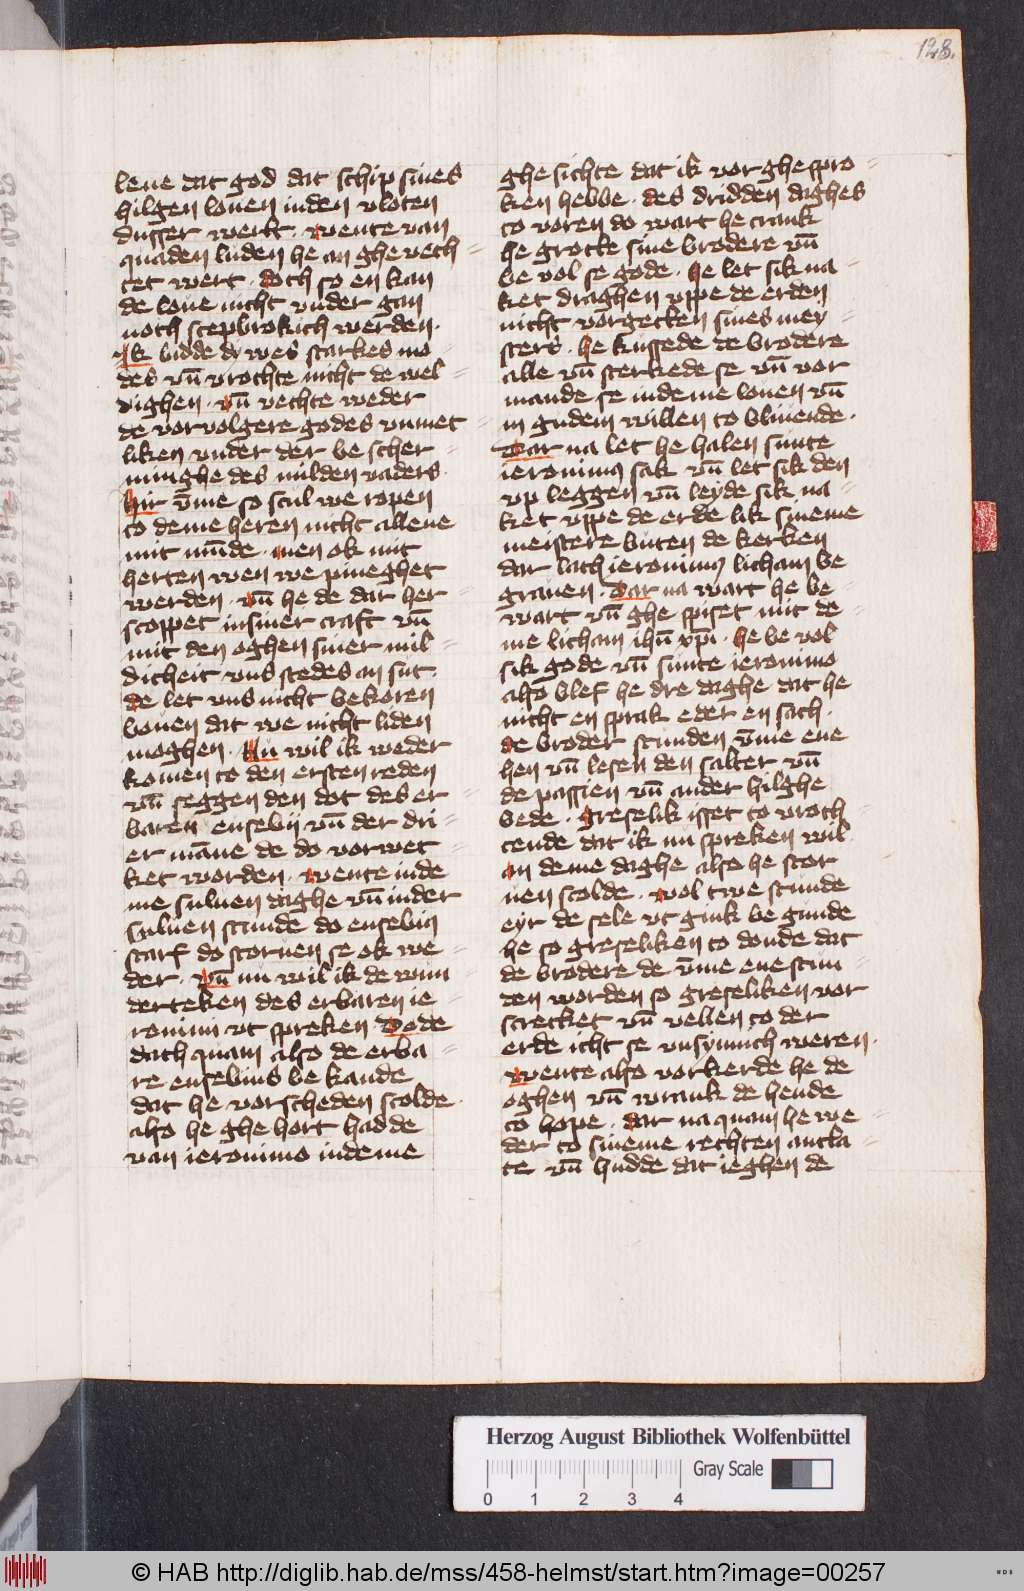 128.
leue dat god dat schip sines
hilgen louen inden vloten
dusser werlt . wente van
quaden luden he an ghe vech
tet wert . doch so en kan
de loue nicht vnder gan
noch scepbrokich werden .
Ik bidde dy wes starkes mo
des vn̄ vrochte nicht de wel
dighen . vn̄ vechte weder
de vorvolgere godes vnmet
liken vnder der be scher
minghe des milden vaders .
Hir v̄me so scul we ropen
to deme heren nicht allene
mit mūde . men ok mit
herten wen we pineghet
werden . vn̄ he de dar her
scoppet in siner craft vn̄
mit den oghen siner mil
dicheit vns stedes an sut .
de let vns nicht bekoren
bouen dat we nicht liden
moghen . Nu wil ik weder
komen to den ersten reden
vn̄ seggen den dot des er
baren eusebij vn̄ der dri
er māne de do vorwet
ket worden . wente inde
me suluen daghe vn̄ inder
suluen stunde do eusebiꝰ
starf do storuen se ok we
der . vn̄ nu wil ik de wun
derteken des erbaren ie
ronimi vt spreken Do de
dach quam also de erba
re eusebius be kande
dat he vorscheden scolde .
also he ghe hort hadde
van ieronimo in deme
ghe sichte dat ik vor ghe spro
ken hebbe . des dridden daghes
to voren do wart he crank
he grotte sine brodere vn̄
be vol se gode . he let sik na
ket draghen vppe de erden
nicht vorgetten sines mey
sters . he kussede de brodere
alle vn̄ sterkede se vn̄ vor
mande se in deme louen vn̄
in gudem willen to bliuende .
Dar na let he halen sunte
ieronimꝰ sak vn̄ let sik den
vp leggen vn̄ leyde sik na
ket vppe de erde lik sineme
meistere buten de kerken
dar lach ieronimꝰ licham be
grauen . Dar na wart he be
wart vn̄ ghe spiset mit de
me licham ihū xp̄i . he be vol
sik gode vn̄ sunte ieronimo
also blef he dre daghe dat he
nicht en sprak eder en sach .
de broder stunden v̄me ene
hen vn̄ lesen den salter vn̄
de passien vn̄ ander hilghe
bede . greselik isset to vroch
tende dat ik nu spreken wil
an deme daghe also he stor
uen scolde . wol twe stunde
eyr de sele vt gink be gunde
he so greseliken to donde dat
de brodere de v̄me ene stun
den worden so greseliken vor
screcket vn̄ vellen to der
erde icht se vnsynnich weren .
wente also vorkerde he de
oghen vn̄ wrank de hende
to hope . dar na quam he we
der to sineme rechten antla
te vn̄ hudde dat ieghen de
Herzog August Bibliothek Wolfenbüttel
Gray Scale
0 1 2 3 4
© HAB http://diglib.hab.de/mss/458-helmst/start.htm?image=00257